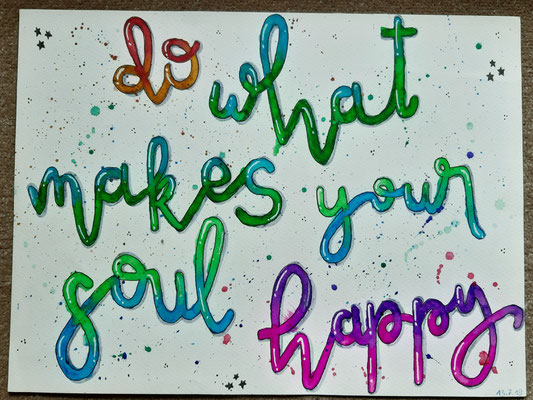 do what
makes your
soul happy